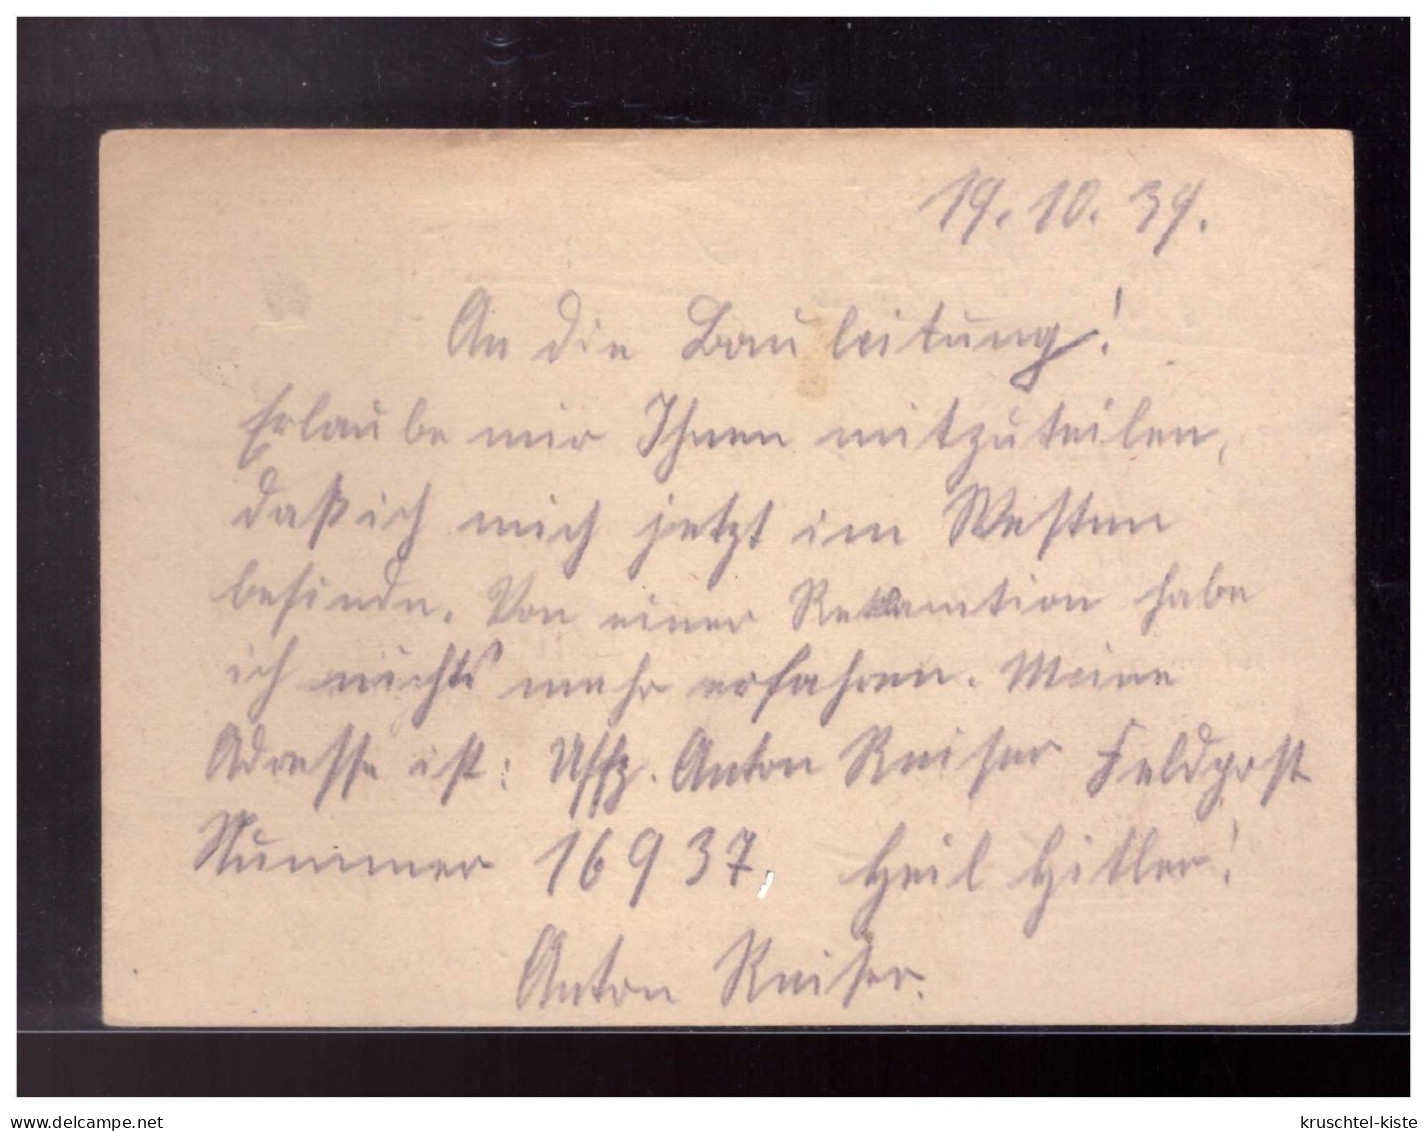 19. 10. 39.
An die Bauleitung!
Erlaube mir Ihnen mitzuteilen,
daß ich mich jetzt im Westen
befinde. Von einer Reklamtion habe
ich nichts mehr erfahren. Meine
Adresse ist: Uffz. Anton Reiser Feldpost
Nummer 16937, Heil Hitler!
Anton Reiser.
www.delcampe.net
kruschtel-kiste